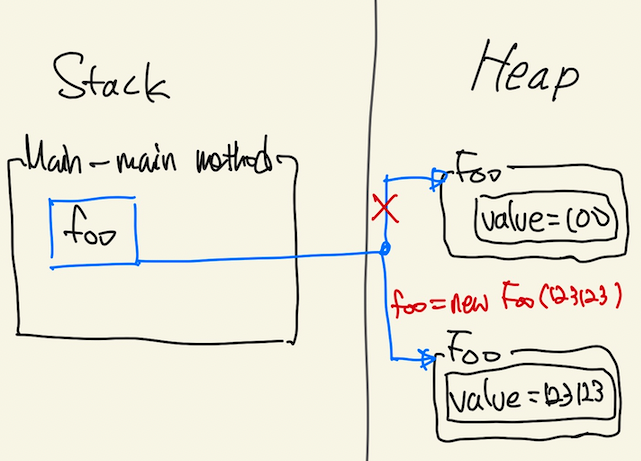 Stack
Heap
Main - main method
foo
Foo
value = 100
foo = new Foo(123123)
Foo
value = 123123